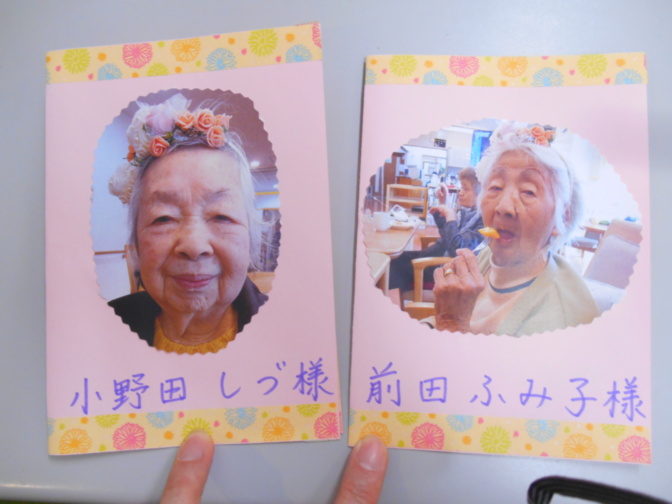 小野田 しづ様
前田 ふみ子様